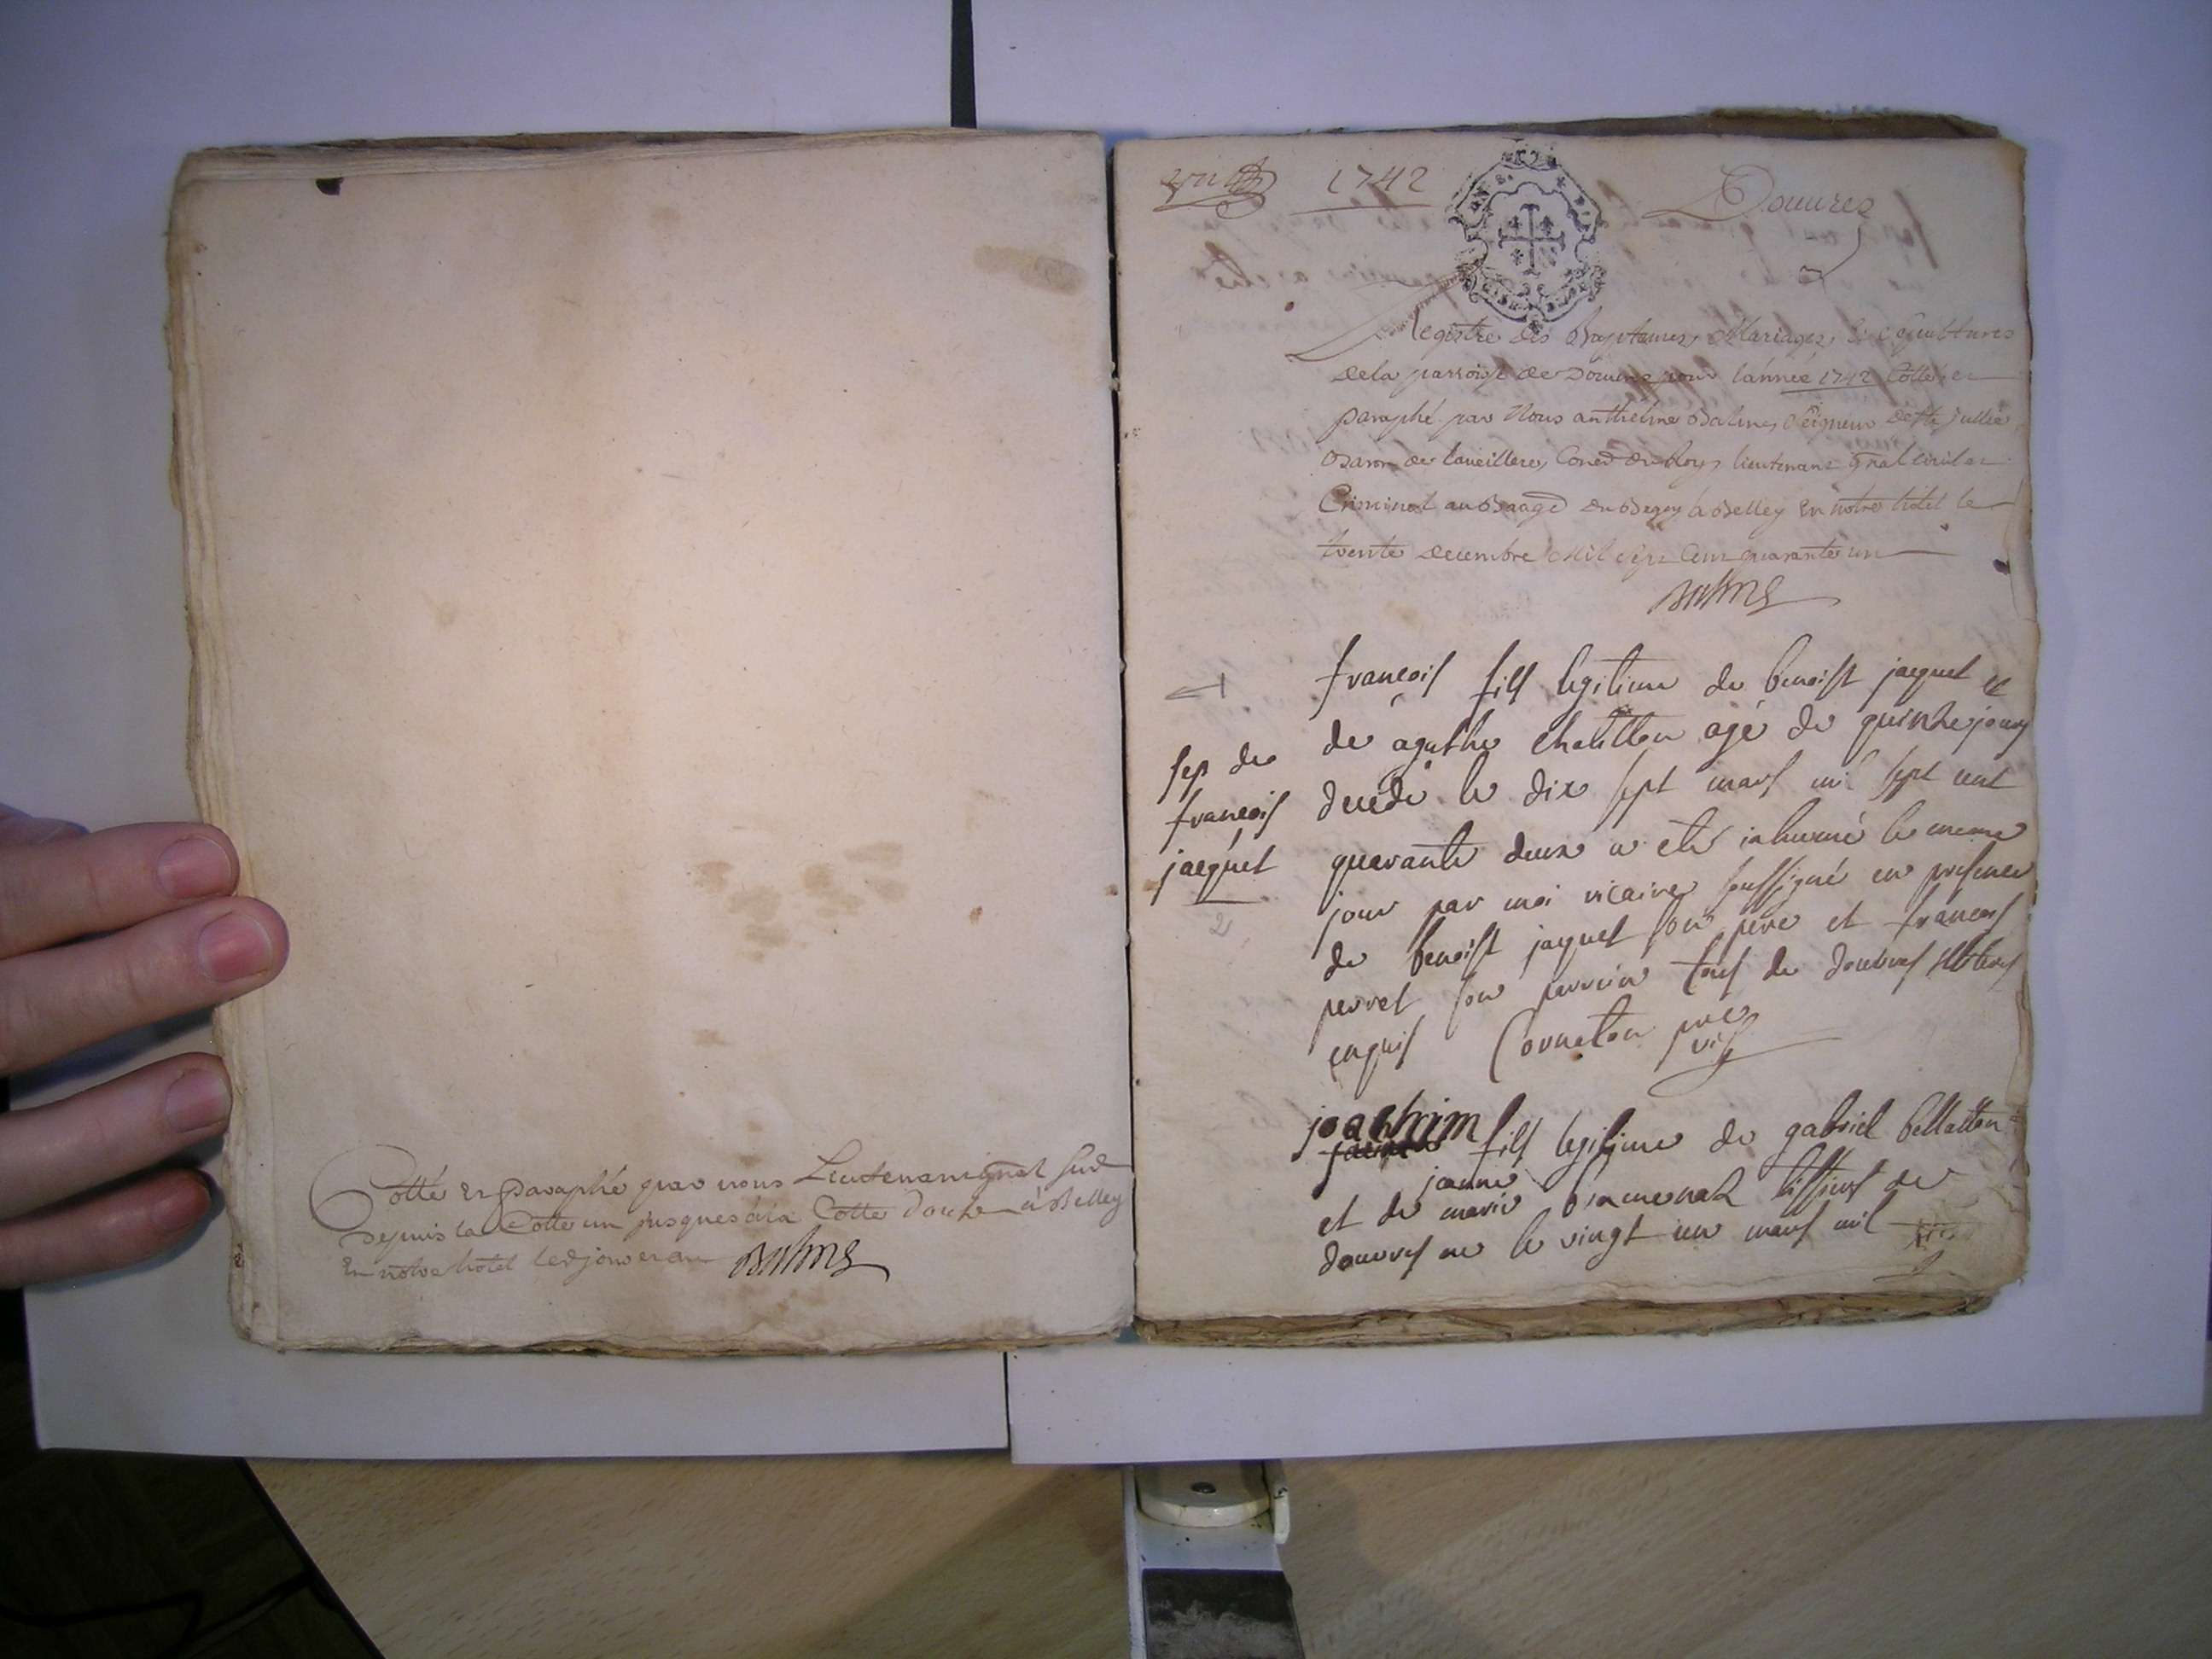 Cotté et paraphé par nous Lieutenant gnal susd
depuis la Cotte un jusques à la Cotte douze à Belley
En notre hôtel led jour et an Balme
1742
Douures
Registre des Baptemes, Mariages, & Sepultures
dela parroisse de Douures pour l'année 1742 Cotté et
paraphé par Nous anthelme Balme, Seigneur de Ste Jullie
Baron de Conser du Roy, lieutenant gnal civil et
Criminel au Baage du Bugey à Belley En notre hôtel le
trente decembre Mil sept Cent quarante un
Balme
sep de
francois
jacquet
2
francois fils legitime de benoist jaquet et
de agathe chatillon agé de quinze jours
decedé le dix sept mars mil sept cent
quarante deux a eté inhumé le meme
jour par moi vicaire soussigné en presence
de benoist jaquet son père et francois
perret son parrein tous de douvres illiteres
enquis Cornaton pre
vic
joachim
fils legitime de gabriel bellatton
janne
et de marie
douvres né le vingt un mars mil